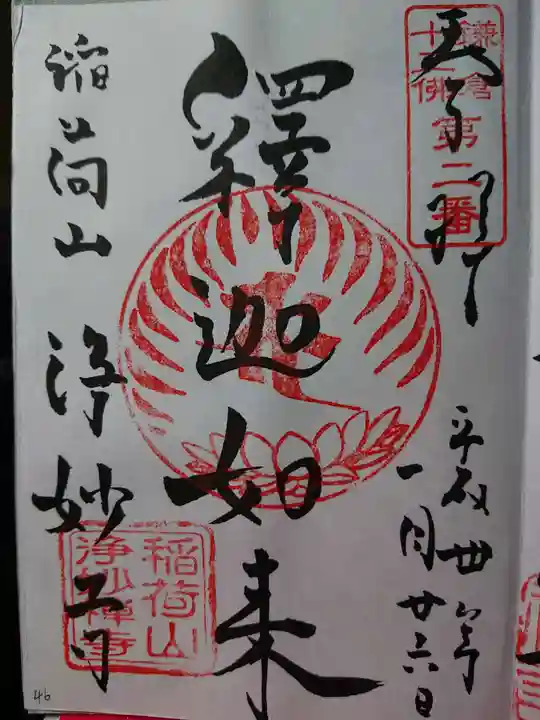 鎌倉
十三佛
第二番
奉拝
平成
一月廿六日
釋迦如来
稲荷山 浄妙寺
稲荷山
浄妙禅寺
46